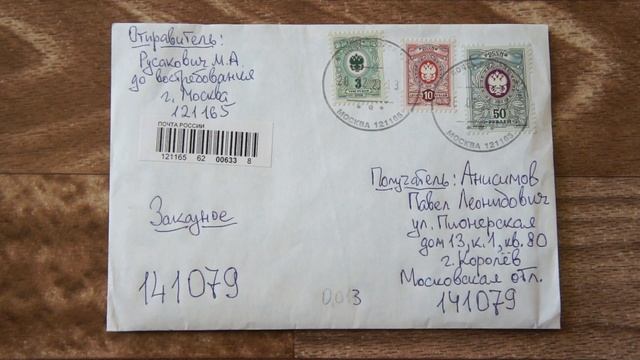 Отправитель:
Русакович М.А.
до востребования
г. Москва
121165
ПОЧТА РОССИИ
121165 62 00633 8
3
10
50
РУБЛЕЙ
МОСКВА 121165
МОСКВА 121165
Получатель: Анисимов
Павел Леонидович
ул. Пионерская
дом 13, к.1, кв. 80
г. Королёв
Московская отл.
141079
Заказное
141079
0,013